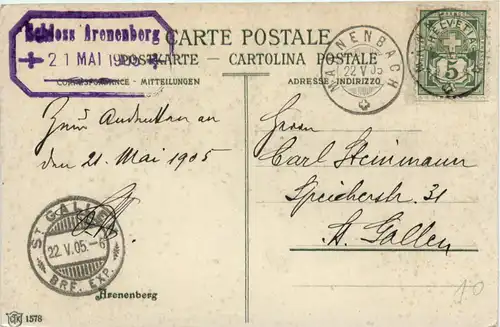 Schloss Arenenberg
21 MAI 1905
CARTE POSTALE
POSTKARTE - CARTOLINA POSTALE
CORRESPONDANCE - MITTEILUNGEN
ADRESSE-INDIRIZZO
MANNENBACH
22.V.05
HELVETIA
5
Zum Andenken an
den 21. Mai 1905
Herrn
Carl Steinmann
Speicherstr. 31
St. Gallen
ST. GALLEN
22.V.05.-6
BRF. EXP.
Arenenberg
1578